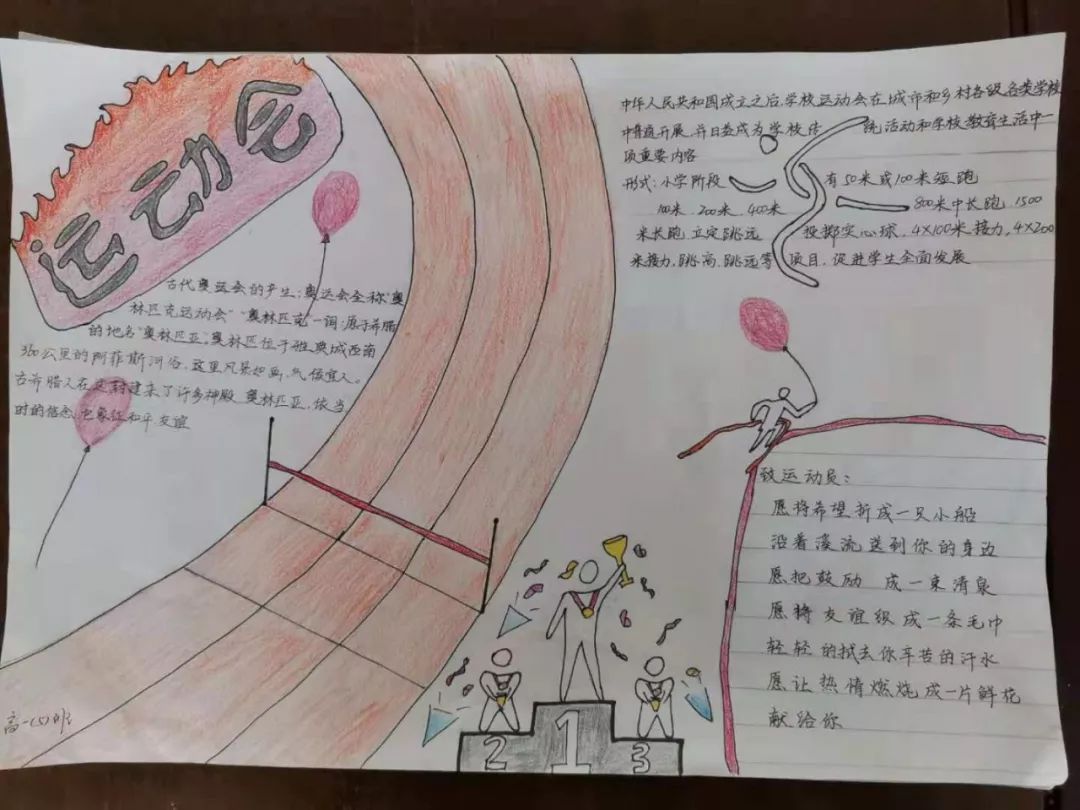 运动会
古代奥运会的产生：奥运会全称"奥
林匹克运动会" "奥林匹克"一词，原于希腊
的地名"奥林匹亚"。奥林匹位于雅典城西南
360公里的阿菲斯河谷，这里风景如画，气候宜人。
古希腊人在这封建来了许多神殿 奥林匹亚，依当
时的信念，它象征和平 友谊
高一(5)班
中华人民共和国成立之后，学校运动会在城市和乡村各级各类学校
中普遍开展，并日益成为学校传 统活动和学校教育生活中一
项重要内容
形式：小学阶段 有50米或100米短跑
100米、200米、400米 800米中长跑、1500
米长跑、立定跳远 投掷实心球，4×100米接力，4×200
米接力，跳高、跳远等 项目，促进学生全面发展
致运动员：
愿将希望折成一只小船
沿着溪流送到你的身边
愿把鼓励 成一束清泉
愿将友谊织成一条毛巾
轻轻的拭去你辛苦的汗水
愿让热情燃烧成一片鲜花
献给你
2 1 3